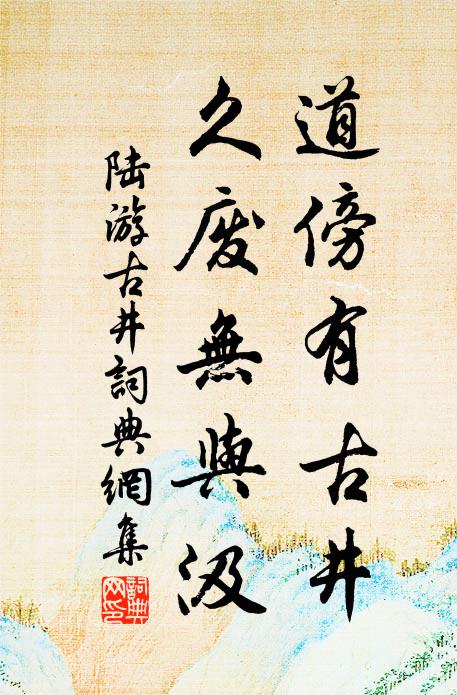 道傍有古井
久废無與汲
陆游古井詞典網集
詞典网印